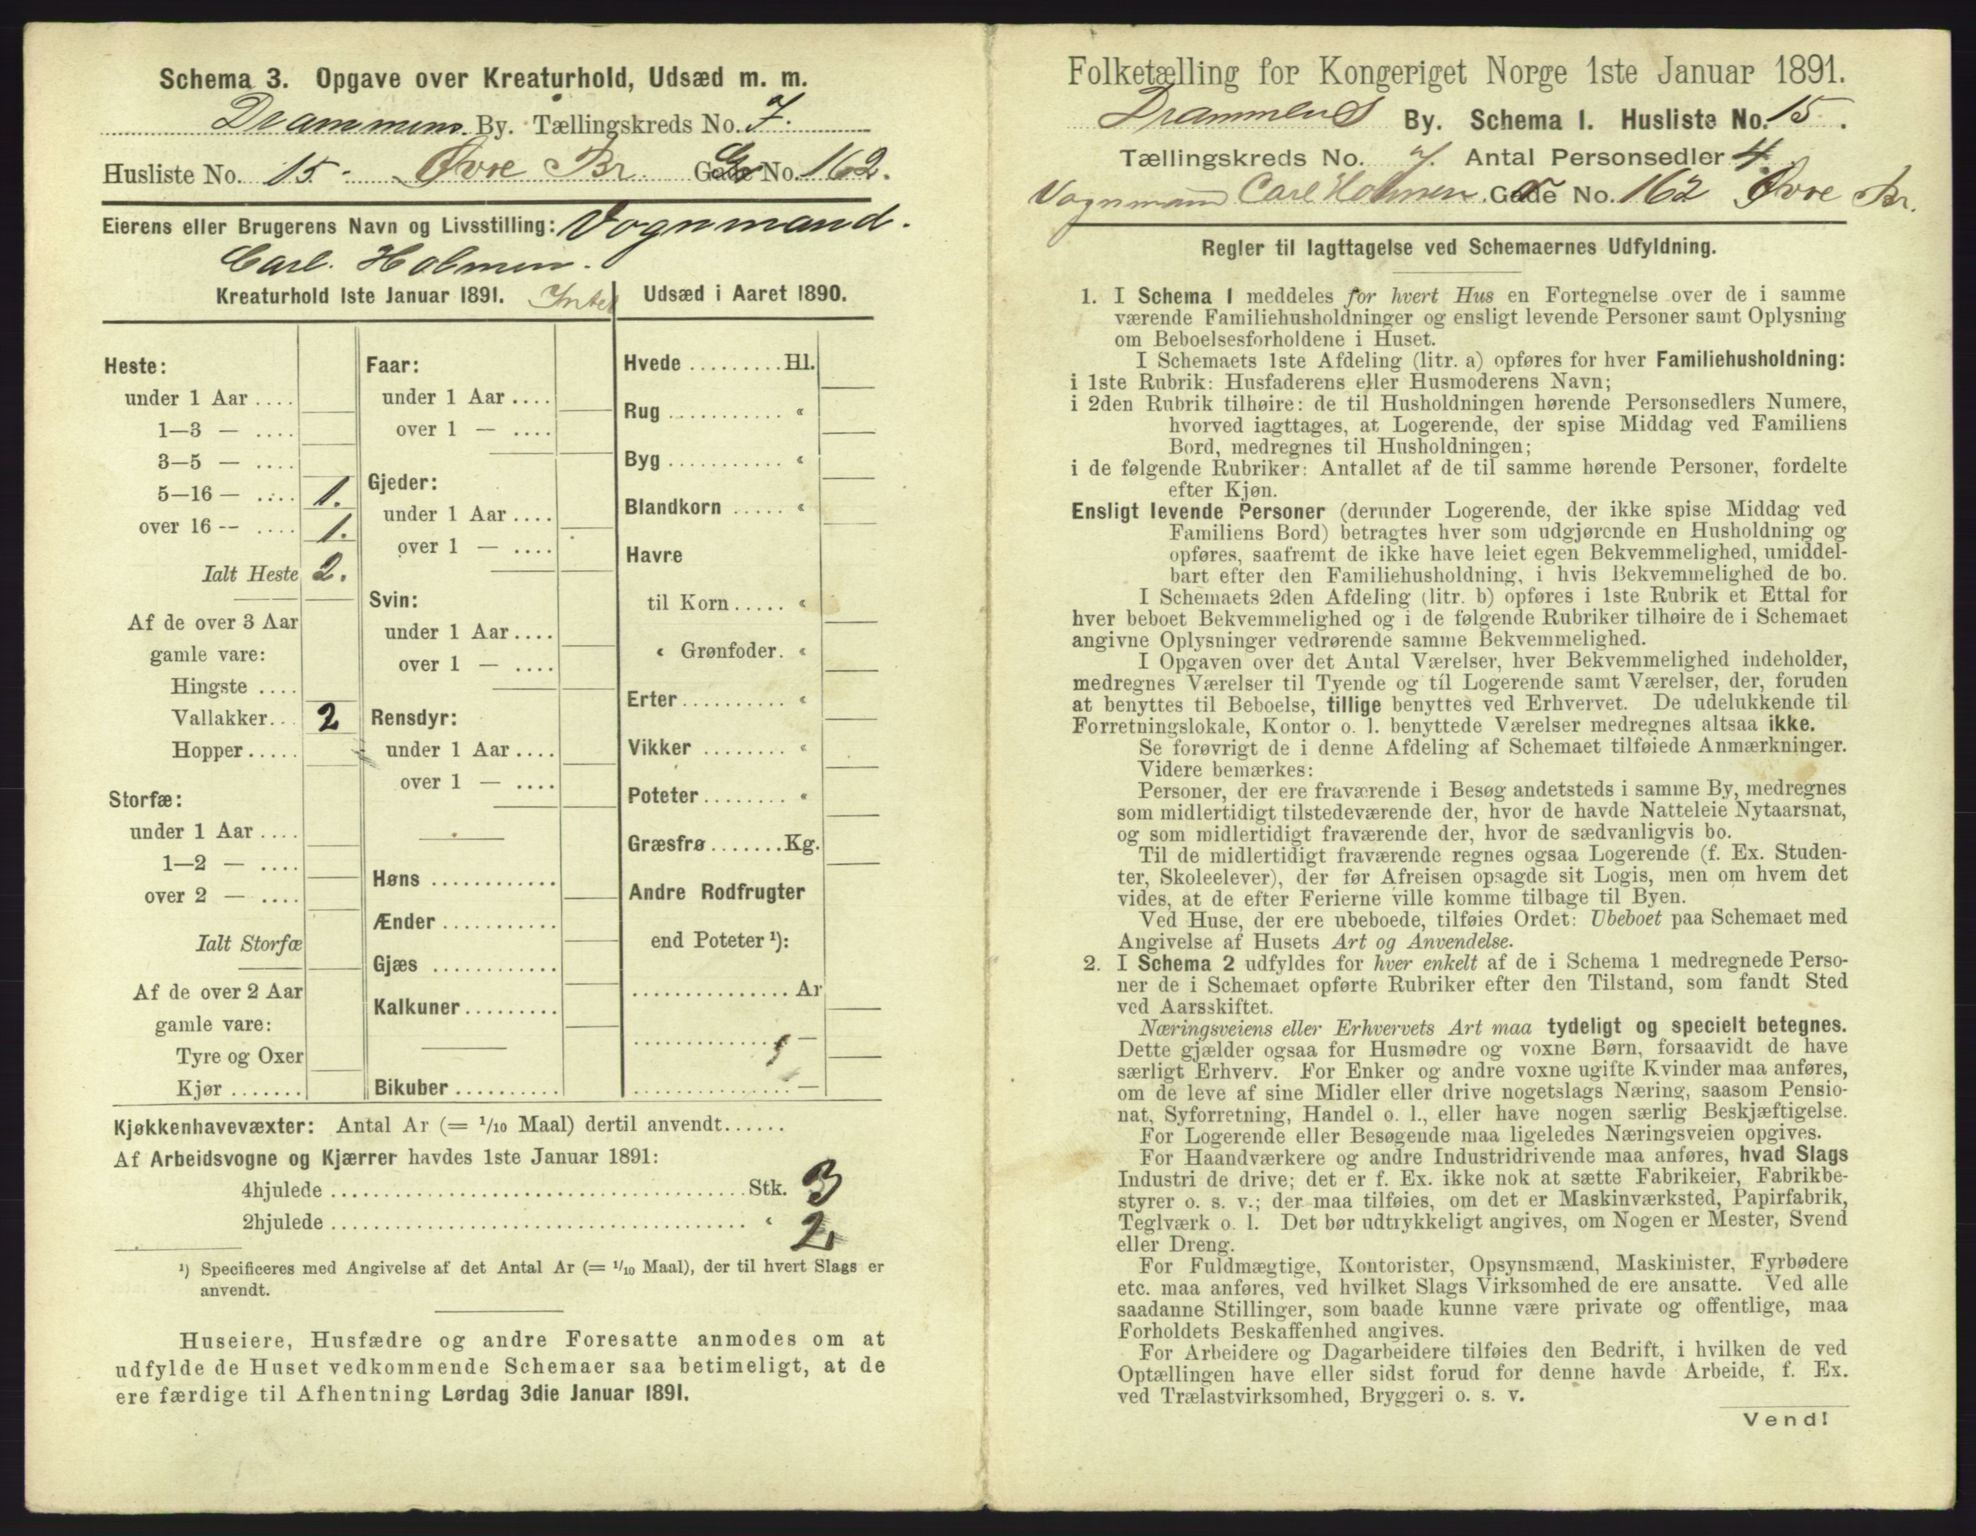 Schema 3. Opgave over Kreaturhold, Udsæd m. m.
Drammens By. Tællingskreds No. 7.
Husliste No. 15. Øvre Br. Gade No. 162.
Eierens eller Brugerens Navn og Livsstilling: Vognmand.
Carl Holmen.
Kreaturhold 1ste Januar 1891. Intet
Heste:
under 1 Aar ....
1—3 — ....
3—5 — ....
5—16 — .... 1.
over 16 — .... 1.
Ialt Heste 2.
Af de over 3 Aar
gamle vare:
Hingste ....
Vallakker... 2
Hopper.....
Storfæ:
under 1 Aar ....
1—2 — ....
over 2 — ....
Ialt Storfæ
Af de over 2 Aar
gamle vare:
Tyre og Oxer
Kjør .......
Faar:
under 1 Aar ....
over 1 — ....
Gjeder:
under 1 Aar ....
over 1 — ....
Svin:
under 1 Aar ....
over 1 — ....
Rensdyr:
under 1 Aar ....
over 1 — ....
Høns ............
Ænder ...........
Gjæs ............
Kalkuner.........
Bikuber ..........
Udsæd i Aaret 1890.
Hvede .........Hl.
Rug ........... «
Byg ........... «
Blandkorn ..... «
Havre
til Korn ..... «
« Grønfoder. «
Erter .......... «
Vikker ........ «
Poteter ........ «
Græsfrø .......Kg.
Andre Rodfrugter
end Poteter ¹):
............... Ar
............... —
............... —
Kjøkkenhavevæxter: Antal Ar (= 1/10 Maal) dertil anvendt......
Af Arbeidsvogne og Kjærrer havdes 1ste Januar 1891:
4hjulede ........................................Stk. 3
2hjulede ........................................ « 2
¹) Specificeres med Angivelse af det Antal Ar (= 1/10 Maal), der til hvert Slags er
anvendt.
Huseiere, Husfædre og andre Foresatte anmodes om at
udfylde de Huset vedkommende Schemaer saa betimeligt, at de
ere færdige til Afhentning Lørdag 3die Januar 1891.
Folketælling for Kongeriget Norge 1ste Januar 1891.
Drammens By. Schema 1. Husliste No. 15.
Tællingskreds No. 7. Antal Personsedler 4.
Vognmand Carl Holmen. Gade No. 162 Øvre Br.
Regler til Iagttagelse ved Schemaernes Udfyldning.
1. I Schema 1 meddeles for hvert Hus en Fortegnelse over de i samme
værende Familiehusholdninger og ensligt levende Personer samt Oplysning
om Beboelsesforholdene i Huset.
I Schemaets 1ste Afdeling (litr. a) opføres for hver Familiehusholdning:
i 1ste Rubrik: Husfaderens eller Husmoderens Navn;
i 2den Rubrik tilhøire: de til Husholdningen hørende Personsedlers Numere,
hvorved iagttages, at Logerende, der spise Middag ved Familiens
Bord, medregnes til Husholdningen;
i de følgende Rubriker: Antallet af de til samme hørende Personer, fordelte
efter Kjøn.
Ensligt levende Personer (derunder Logerende, der ikke spise Middag ved
Familiens Bord) betragtes hver som udgjørende en Husholdning og
opføres, saafremt de ikke have leiet egen Bekvemmelighed, umiddel-
bart efter den Familiehusholdning, i hvis Bekvemmelighed de bo.
I Schemaets 2den Afdeling (litr. b) opføres i 1ste Rubrik et Ettal for
hver beboet Bekvemmelighed og i de følgende Rubriker tilhøire de i Schemaet
angivne Oplysninger vedrørende samme Bekvemmelighed.
I Opgaven over det Antal Værelser, hver Bekvemmelighed indeholder,
medregnes Værelser til Tyende og til Logerende samt Værelser, der, foruden
at benyttes til Beboelse, tillige benyttes ved Erhvervet. De udelukkende til
Forretningslokale, Kontor o. l. benyttede Værelser medregnes altsaa ikke.
Se forøvrigt de i denne Afdeling af Schemaet tilføiede Anmærkninger.
Videre bemærkes:
Personer, der ere fraværende i Besøg andetsteds i samme By, medregnes
som midlertidigt tilstedeværende der, hvor de havde Natteleie Nytaarsnat,
og som midlertidigt fraværende der, hvor de sædvanligvis bo.
Til de midlertidigt fraværende regnes ogsaa Logerende (f. Ex. Studen-
ter, Skoleelever), der før Afreisen opsagde sit Logis, men om hvem det
vides, at de efter Ferierne ville komme tilbage til Byen.
Ved Huse, der ere ubeboede, tilføies Ordet: Ubeboet paa Schemaet med
Angivelse af Husets Art og Anvendelse.
2. I Schema 2 udfyldes for hver enkelt af de i Schema 1 medregnede Perso-
ner de i Schemaet opførte Rubriker efter den Tilstand, som fandt Sted
ved Aarsskiftet.
Næringsveiens eller Erhvervets Art maa tydeligt og specielt betegnes.
Dette gjælder ogsaa for Husmødre og voxne Børn, forsaavidt de have
særligt Erhverv. For Enker og andre voxne ugifte Kvinder maa anføres,
om de leve af sine Midler eller drive nogetslags Næring, saasom Pensio-
nat, Syforretning, Handel o. l., eller have nogen særlig Beskjæftigelse.
For Logerende eller Besøgende maa ligeledes Næringsveien opgives.
For Haandværkere og andre Industridrivende maa anføres, hvad Slags
Industri de drive; det er f. Ex. ikke nok at sætte Fabrikeier, Fabrikbe-
styrer o. s. v.; der maa tilføies, om det er Maskinværksted, Papirfabrik,
Teglværk o. l. Det bør udtrykkeligt angives, om Nogen er Mester, Svend
eller Dreng.
For Fuldmægtige, Kontorister, Opsynsmænd, Maskinister, Fyrbødere
etc. maa anføres, ved hvilket Slags Virksomhed de ere ansatte. Ved alle
saadanne Stillinger, som baade kunne være private og offentlige, maa
Forholdets Beskaffenhed angives.
For Arbeidere og Dagarbeidere tilføies den Bedrift, i hvilken de ved
Optællingen have eller sidst forud for denne havde Arbeide, f. Ex.
ved Trælastvirksomhed, Bryggeri o. s. v.
Vend!